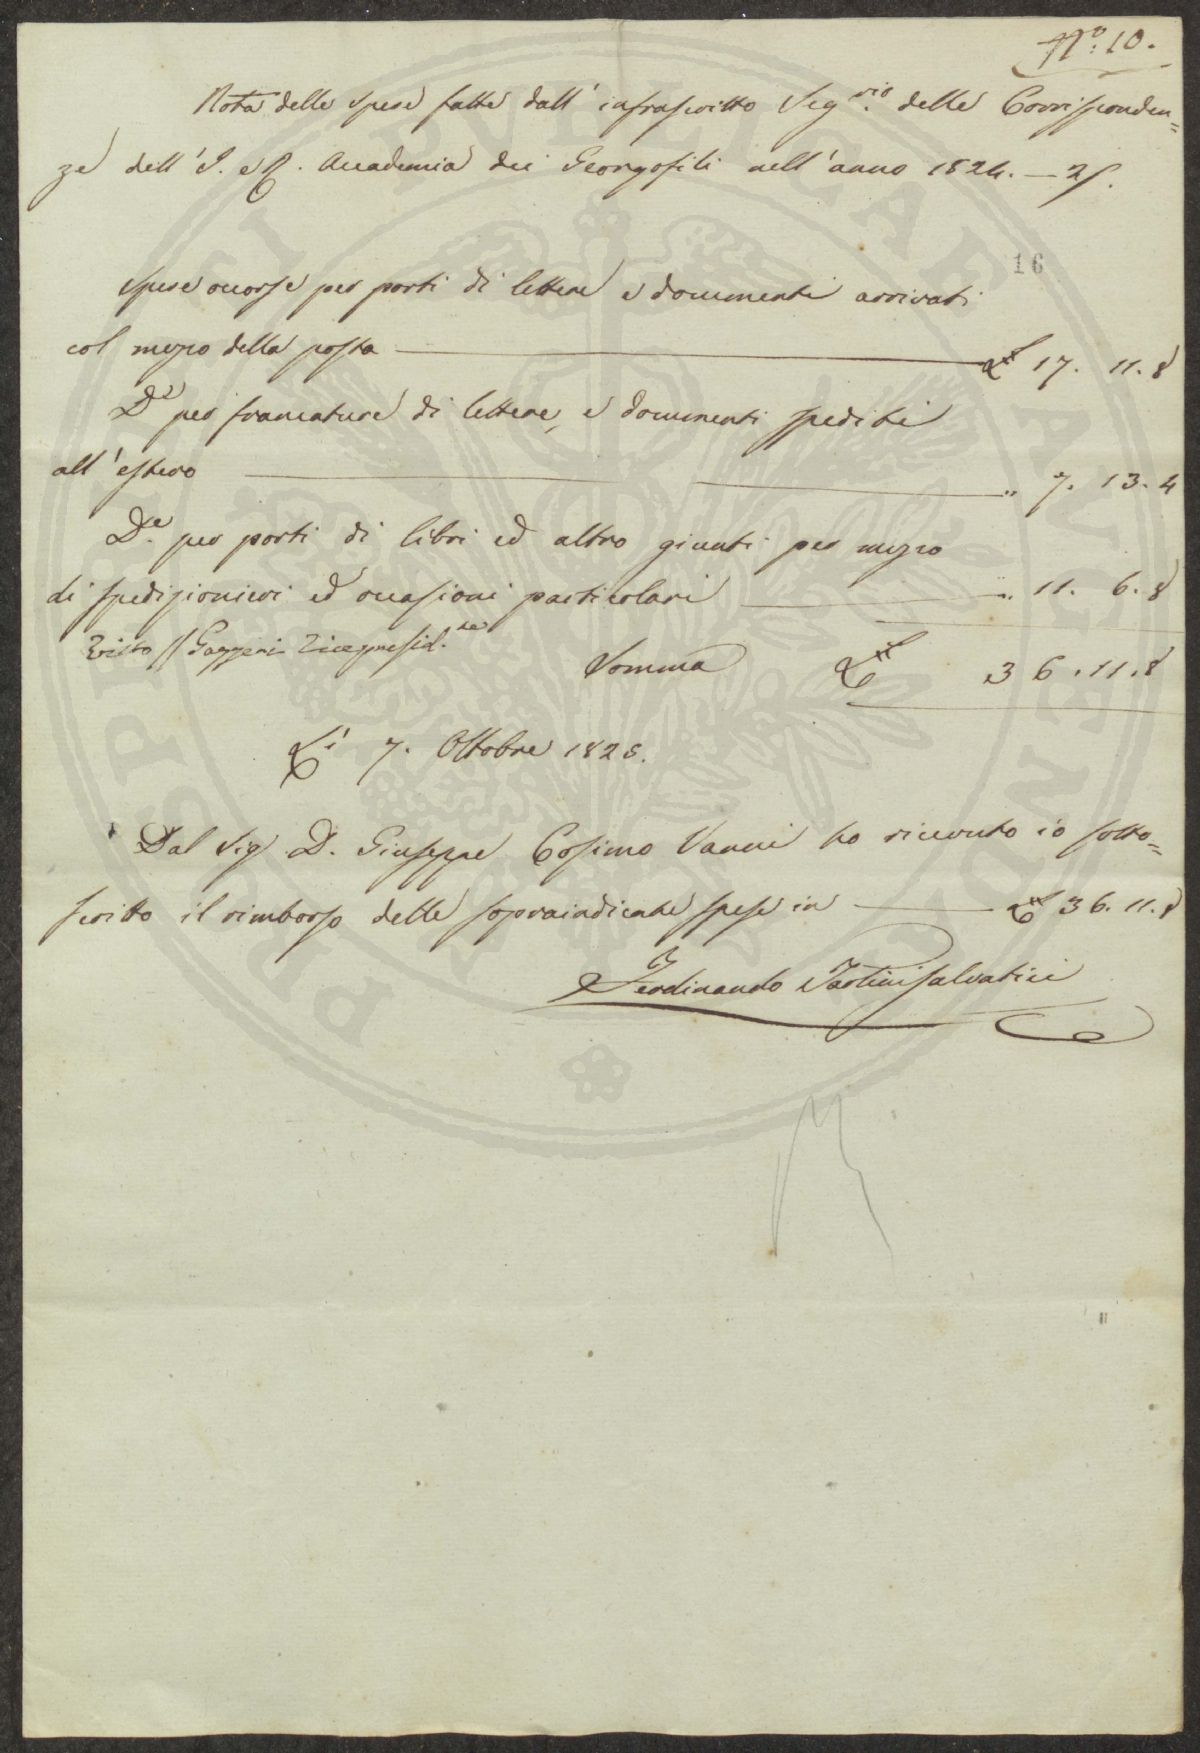 N.° 10.
Nota delle spese fatte dall' infrascritto Seg.rio delle Corrisponden=
ze dell' I. e R. Accademia dei Georgofili nell'anno 1824. — 25.
16
Spese occorse per porti di lettere e documenti arrivati
col mezzo della posta — £ 17. 11. 8
D.e per francature di lettere, e documenti spediti
all'estero — " 7. 13. 4
D.e per porti di libri ed altro giunti per mezzo
di spedizionieri ed occasioni particolari — " 11. 6. 8
Visto // Gazzeri Vicepresid.te
Somma £ 36. 11. 8
Li 7. Ottobre 1825.
Dal Sig. D. Giuseppe Cosimo Vanni ho ricevuto io sotto=
scritto il rimborso delle sopraindicate spese in — £ 36. 11. 8
Ferdinando Tartini Salvatici